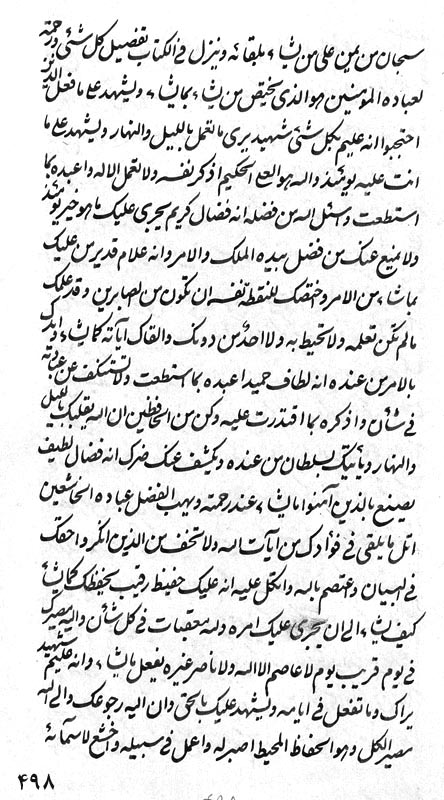 سبحان من يمن على من يشاء بلقائه وينزل فى الكتاب تفصيل كل شئ ورحمة
لعباده المؤمنين هو الذى يختص من يشاء بما يشاء ويشهد على ما فعل الذين
احتجبوا انه عليم بكل شئ شهيد يرى ما تعمل بالليل والنهار ويشهد على ما
انت عليه يومئذ والله هو العلى الحكيم اذكر نفسه ولا تعمل الا له واعبده بما
استطعت وسئل الله من فضله انه فضال كريم يجرى عليك ما هو خير يومئذ
ولا يمنع عنك من فضل بيده الملك والامر وانه علام قدير من عليك
بما شاء من الامر واختصك للنقطة نفسه ان تكون من الصابرين وقد علمك
ما لم تكن تعلمه ولا تحيط به ولا احد من دونك والقاك آياته كما يشاء وايدك
بالامر من عنده انه لطاف حميد اعبده بما استطعت ولا تستنكف عن عبادته
فى شأن واذكره بما اقتدرت عليه وكن من الحافظين ان الله يقلبك بالليل
والنهار ويأتيك بسلطان من عنده ويكشف عنك ضرك انه فضال لطيف
يصنع بالذين آمنوا ما يشاء عند رحمته ويهب الفضل عباده الخاشعين
اتل ما يلقى فى فؤادك من آيات الله ولا تخف من الذين انكروا حقك
فى البيان واعتصم بالله واتكل عليه انه عليك حفيظ رقيب يحفظك كما يشاء
كيف يشاء الى ان يجرى عليك امره وله معقبات فى كل شأن واليه مصيرك
فى يوم قريب يوم لا عاصم الا الله ولا ناصر غيره يفعل ما يشاء وانه عليم شهيد
يراك وما تفعل فى ايامه ويشهد عليك بالحق وان اليه رجوعك والى الله
مصير الكل وهو الحفاظ المحيط اصبر له واعمل فى سبيله واخشع لاسمائه
۴۹۸